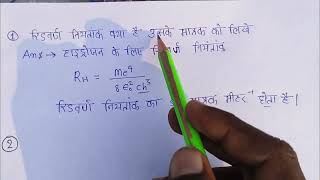 ① रिडवर्ग नियतांक क्या है उसके मात्रक को लिखे
Ans → हाइड्रोजन के लिए नियतांक
R_H = me⁴ / 8ε₀²ch³
रिडवर्ग नियतांक का मात्रक मीटर⁻¹ होता है।
②